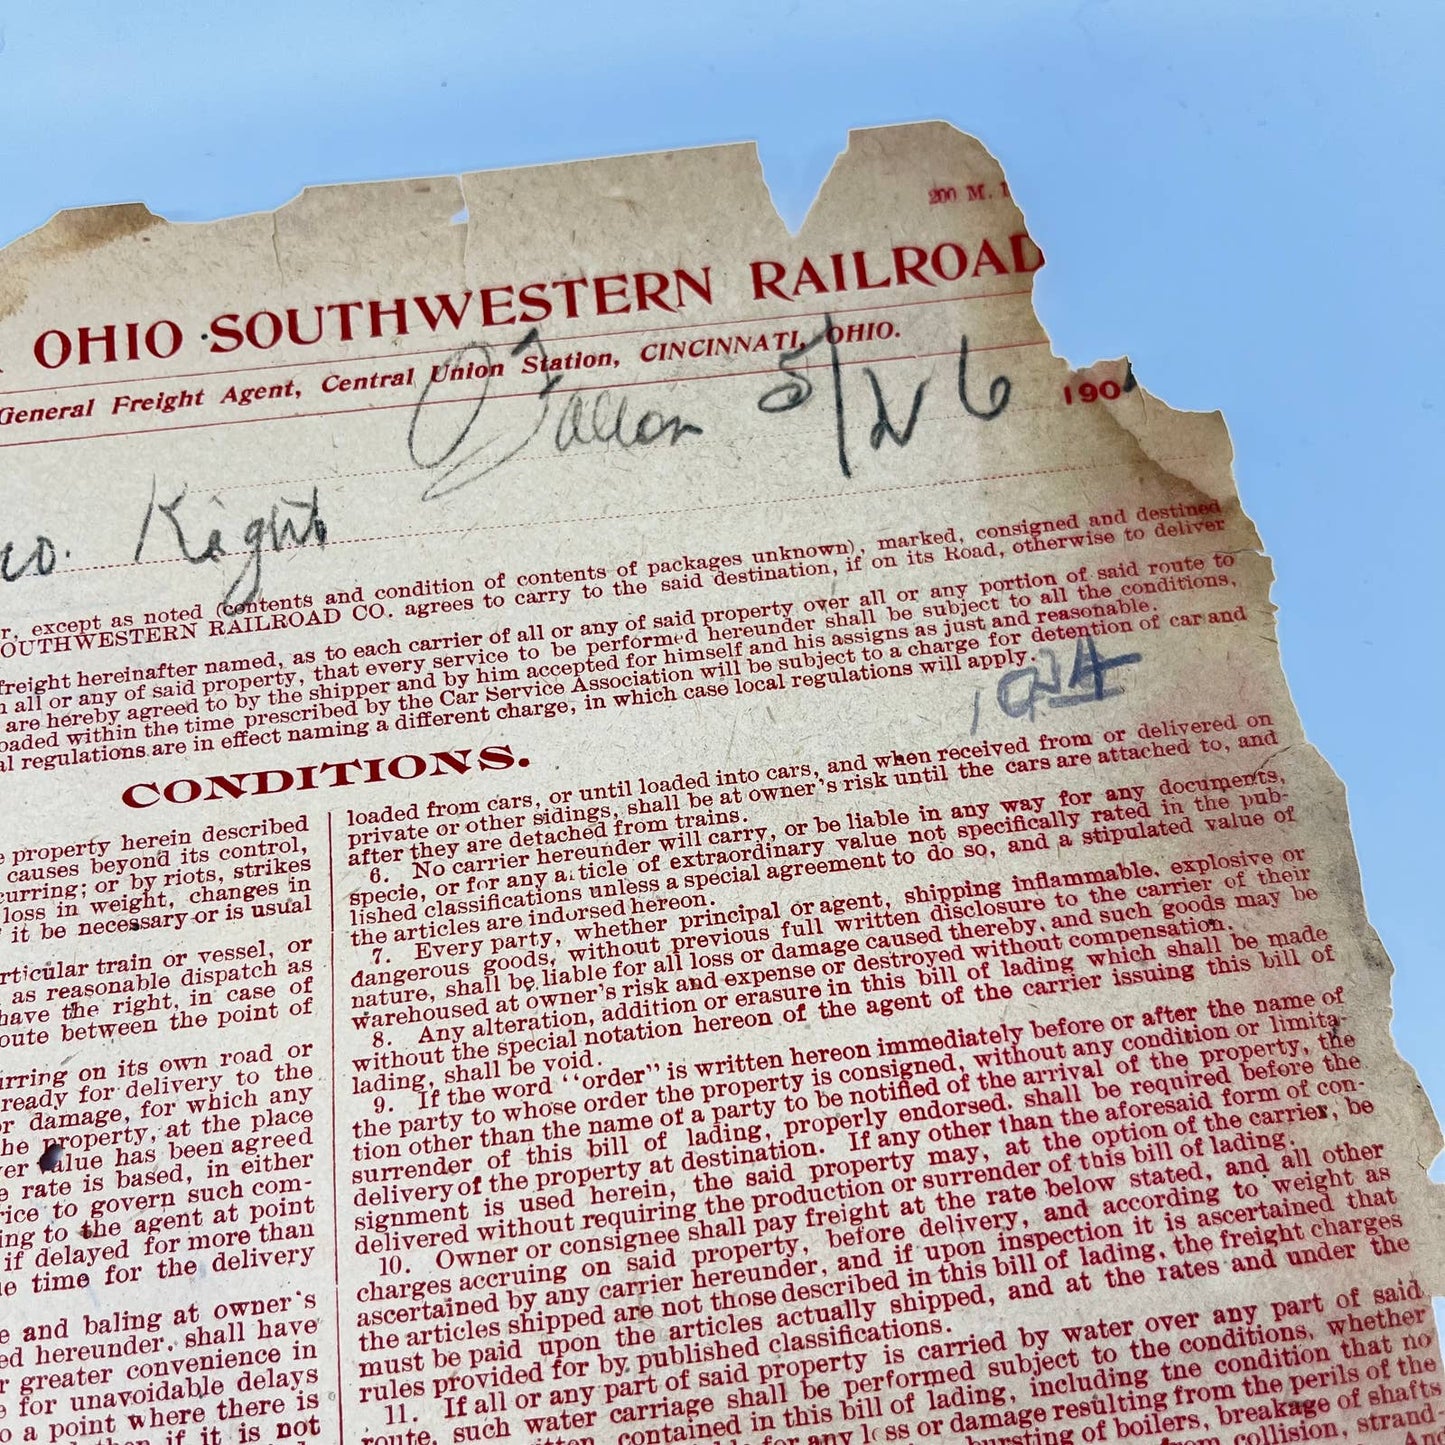 200 M. 1
OHIO SOUTHWESTERN RAILROAD
General Freight Agent, Central Union Station, CINCINNATI, OHIO.
O'Fallon 5/26 190
co. Kight
r, except as noted (contents and condition of contents of packages unknown), marked, consigned and destined
OUTHWESTERN RAILROAD CO. agrees to carry to the said destination, if on its Road, otherwise to deliver
freight hereinafter named, as to each carrier of all or any of said property over all or any portion of said route to
n all or any of said property, that every service to be performed hereunder shall be subject to all the conditions,
are hereby agreed to by the shipper and by him accepted for himself and his assigns as just and reasonable.
oaded within the time prescribed by the Car Service Association will be subject to a charge for detention of car and
al regulations are in effect naming a different charge, in which case local regulations will apply.
CONDITIONS.
e property herein described
causes beyond its control,
curring; or by riots, strikes
loss in weight, changes in
it be necessary or is usual
rticular train or vessel, or
as reasonable dispatch as
have the right, in case of
oute between the point of
urring on its own road or
ready for delivery to the
or damage, for which any
he property, at the place
ver value has been agreed
e rate is based, in either
rice to govern such com-
ing to the agent at point
if delayed for more than
le time for the delivery
e and baling at owner's
ed hereunder, shall have
r greater convenience in
e for unavoidable delays
o a point where there is
if it is not
loaded from cars, or until loaded into cars, and when received from or delivered on
private or other sidings, shall be at owner's risk until the cars are attached to, and
after they are detached from trains.
6. No carrier hereunder will carry, or be liable in any way for any documents,
specie, or for any article of extraordinary value not specifically rated in the pub-
lished classifications unless a special agreement to do so, and a stipulated value of
the articles are indorsed hereon.
7. Every party, whether principal or agent, shipping inflammable, explosive or
dangerous goods, without previous full written disclosure to the carrier of their
nature, shall be liable for all loss or damage caused thereby, and such goods may be
warehoused at owner's risk and expense or destroyed without compensation.
8. Any alteration, addition or erasure in this bill of lading which shall be made
without the special notation hereon of the agent of the carrier issuing this bill of
lading, shall be void.
9. If the word "order" is written hereon immediately before or after the name of
the party to whose order the property is consigned, without any condition or limita-
tion other than the name of a party to be notified of the arrival of the property, the
surrender of this bill of lading, properly endorsed, shall be required before the
delivery of the property at destination. If any other than the aforesaid form of con-
signment is used herein, the said property may, at the option of the carrier, be
delivered without requiring the production or surrender of this bill of lading.
10. Owner or consignee shall pay freight at the rate below stated, and all other
charges accruing on said property, before delivery, and according to weight as
ascertained by any carrier hereunder, and if upon inspection it is ascertained that
the articles shipped are not those described in this bill of lading, the freight charges
must be paid upon the articles actually shipped, and at the rates and under the
rules provided for by published classifications.
11. If all or any part of said property is carried by water over any part of said
route, such water carriage shall be performed subject to the conditions, whether
contained in this bill of lading, including the condition that no
for any loss or damage resulting from the perils of the
bursting of boilers, breakage of shafts
from collision, strand-